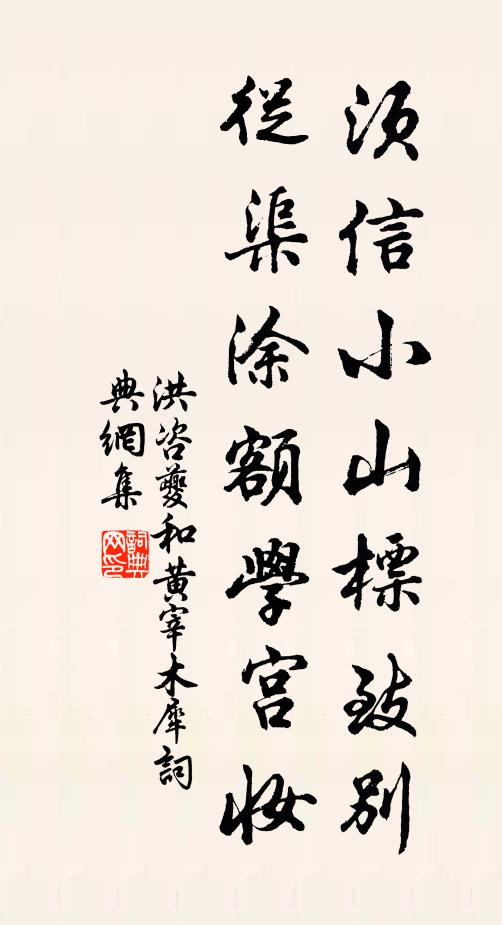 須信小山標致別
從渠涂額學宫妝
洪咨夔和黄宰木犀詞
典網集
詞典网印